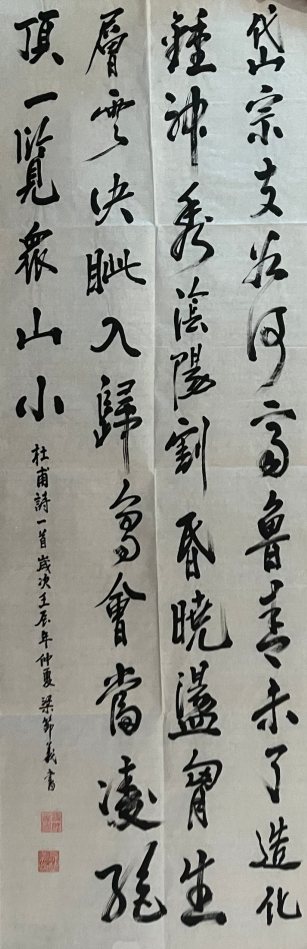 岱宗夫如何齊魯青未了造化
鍾神秀陰陽割昏曉盪胸生
層雲決眦入歸鳥會當凌絕
頂一覽衆山小
杜甫詩一首歲次壬辰年仲夏梁節義書